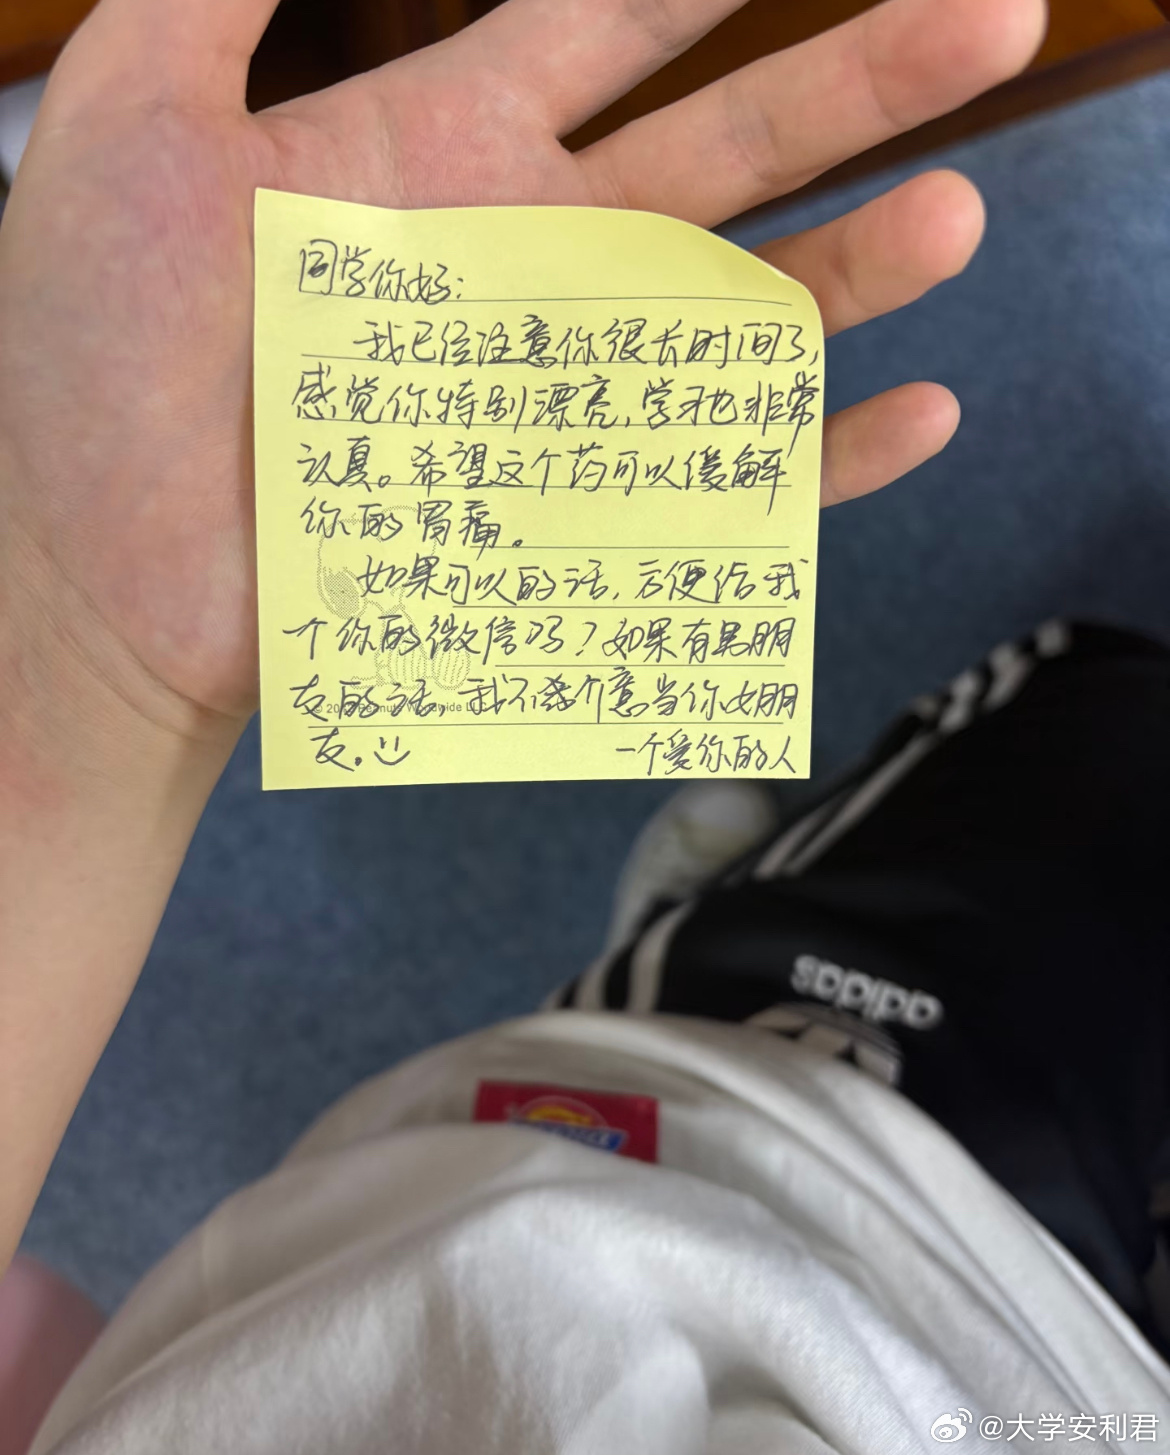 同学你好:
我已经注意你很长时间了,
感觉你特别漂亮,学习也非常
认真。希望这个药可以缓解
你的胃痛。
如果可以的话,方便给我
一个你的微信吗?如果有男朋
友的话,我不介意当你女朋
友。
一个爱你的人
adidas
@大学安利君